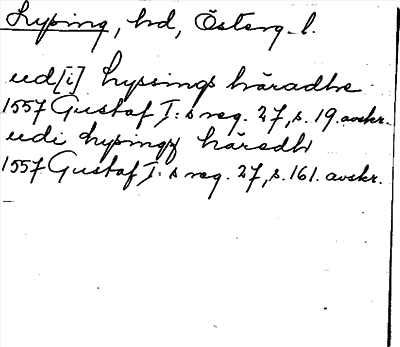 Lysing, hd, Österg. l.
ud[i] Lyssings häradhe
1557 Gustaf I:s reg. 27, s. 19. avskr.
udi Lysingz häredh
1557 Gustaf I:s reg. 27, s. 161. avskr.